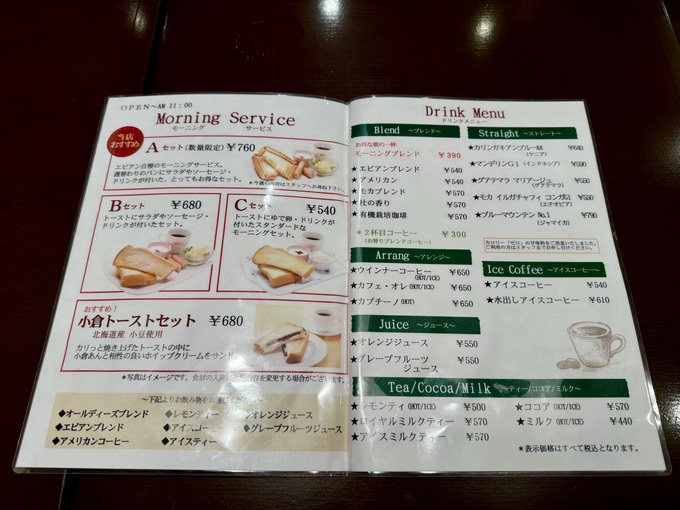 OPEN～AM 11:00
Morning Service
モーニング サービス
当店
おすすめ
Aセット(数量限定) ￥760
エピアン自慢のモーニングサービス。
週替わりのパンにサラダやソーセージ・
ドリンクが付いた、とってもお得なセット。
Bセット ￥680
トーストにサラダやソーセージ・
ドリンクが付いたセット。
Cセット ￥540
トーストにゆで卵・ドリンク
が付いたスタンダードな
モーニングセット。
おすすめ！
小倉トーストセット ￥680
北海道産 小豆使用
カリっと焼き上げたトーストの中に
小倉あんと相性の良いホイップクリームをサンド
*写真はイメージです。食材の入荷
内容を変更する場合がございます。
～下記よりお飲み物を
◆オールディーズブレンド ◆レモンティー ◆オレンジジュース
◆エピアンブレンド ◆アイスコーヒー ◆グレープフルーツジュース
◆アメリカンコーヒー ◆アイスティー
Drink Menu
ドリンクメニュー
Blend ～ブレンド～
お得な朝の一杯
モーニングブレンド ￥390
★エピアンブレンド ￥540
★アメリカン ￥540
★モカブレンド ￥550
★杜の香り ￥550
★有機栽培珈琲 ￥550
*2杯目コーヒー ￥300
(お替りブレンドコーヒー)
Arrang ～アレンジ～
★ウインナーコーヒー(HOT/ICE) ￥650
★カフェ・オレ(HOT/ICE) ￥650
★カプチーノ(HOT) ￥650
Juice ～ジュース～
★オレンジジュース ￥550
★グレープフルーツ
ジュース ￥550
Straight ～ストレート～
★カリンガキアンブルーAA ￥640
(ケニア)
★マンデリンG1(インドネシア) ￥590
★グアテマラ マリアージュ ￥550
(グアテマラ)
★モカ イルガチャフィ コンガG1 ￥640
(エチオピア)
★ブルーマウンテン No.1 ￥790
(ジャマイカ)
カロリー「ゼロ」の甘味料をご用意いたしました。
ご利用の方はスタッフまでお申し付けください。
Ice Coffee ～アイスコーヒー～
★アイスコーヒー ￥540
★水出しアイスコーヒー ￥610
Tea/Cocoa/Milk ～ティー/ココア/ミルク～
★レモンティ(HOT/ICE) ￥500 ★ココア(HOT/ICE) ￥570
★ロイヤルミルクティー ￥570 ★ミルク(HOT/ICE) ￥440
★アイスミルクティー ￥570
*表示価格はすべて税込となります。